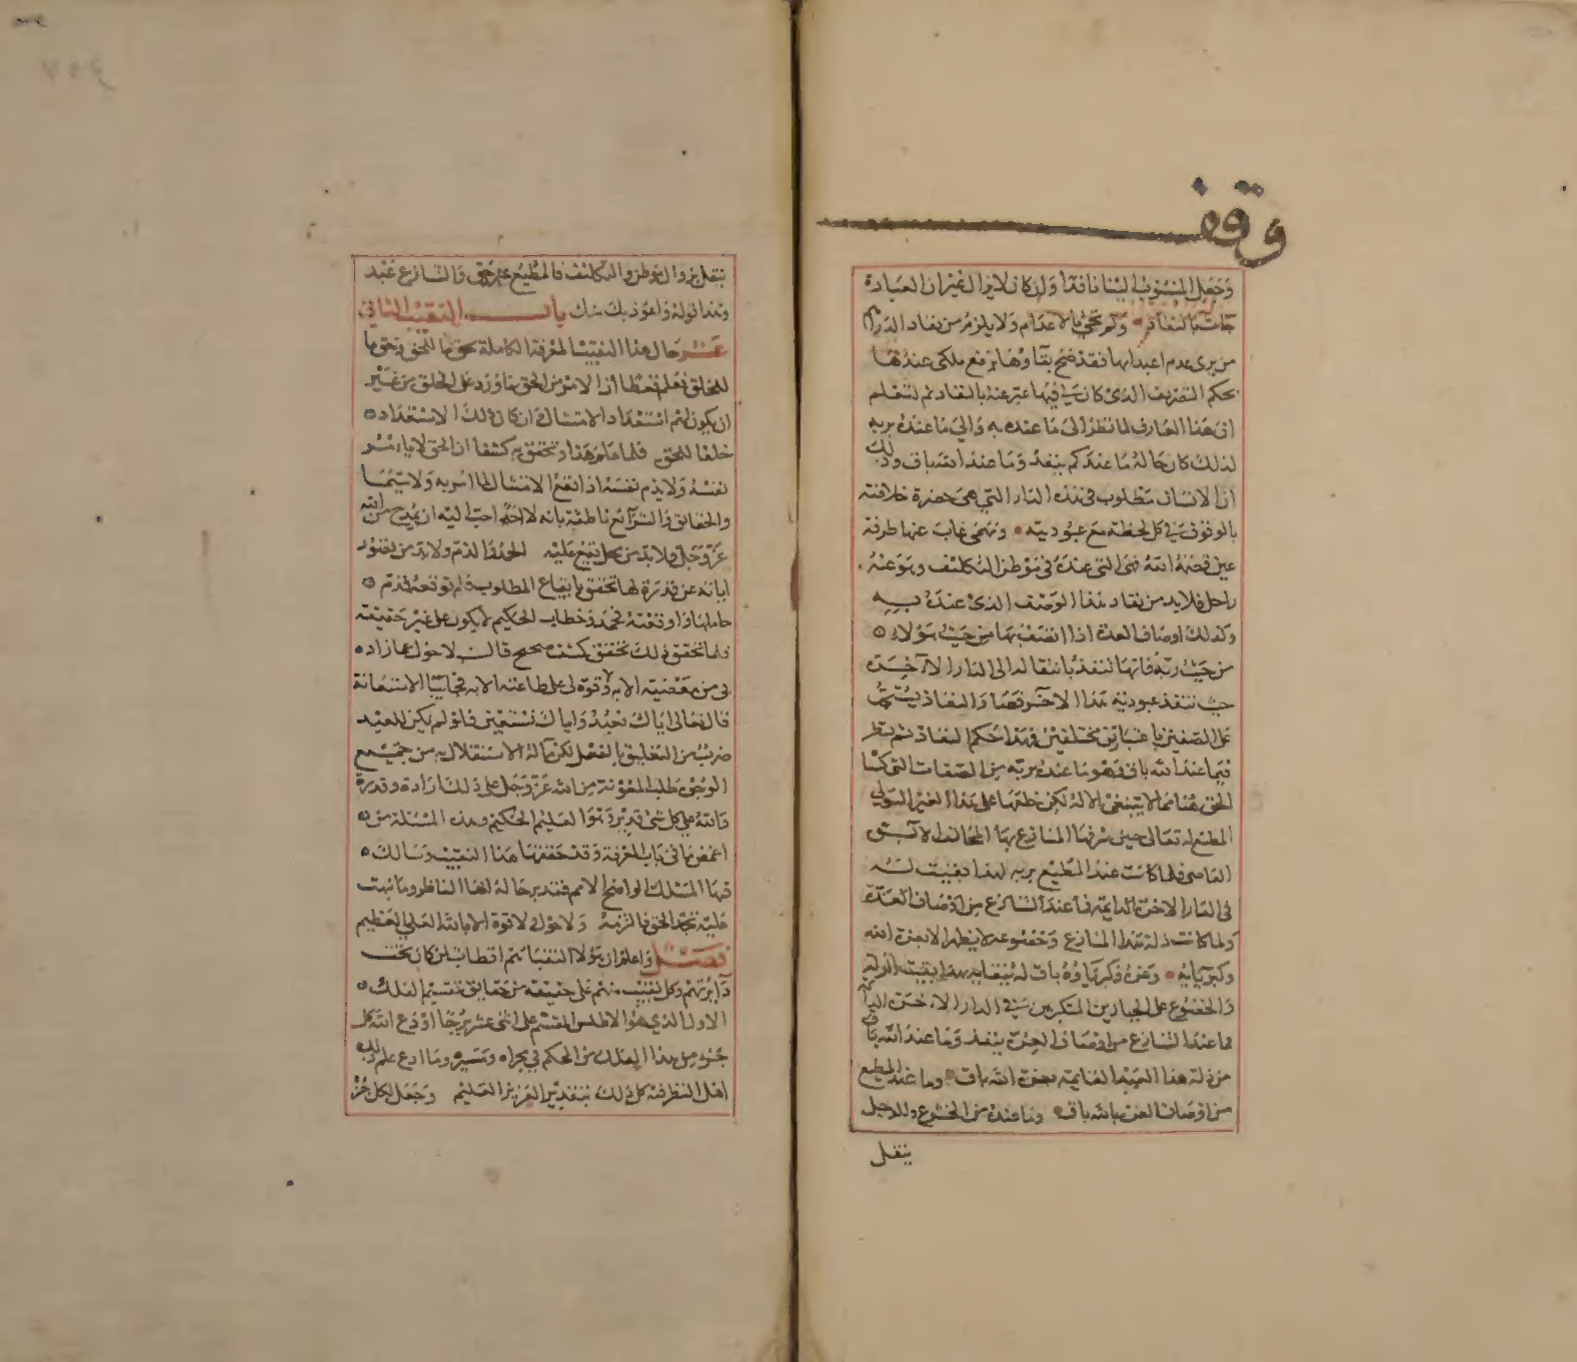 وقف
وجعل المنسوب الينا نافدا وان كان لا يزال غير ان العبارة
جات بالنفاد ولم تجئ بالاعدام ولا يلزم من نفاد الدراهم
من يرى عدم اعيانها فقد صح بقاوها برفع ملكي عندها
بحكم التصريف الذي كان لي فيها عبر عنه بالنفاد ثم لتعلم
ان هذا العارف لما نظر الى ما عنده به والى ما عنده بربه
لذلك كان حاله ما عندكم ينفد وما عند الله باق وذلك
ان الانسان مطلوب في هذه الدار التي هي حضرة خلافته
بالوقوف في كل لحظة مع عبوديته ومتى غاب عنها طرفة
عين قصمه الله فهي التي عنده في موطن التكليف وهو عنه
راحل فلا بد من نفاد هذا الوصف الذي عنده به
وكذلك اوصاف العزة اذا اتصف بها من حيث هو لا
من حيث ربه فانها تنفد بانتقاله الى الدار الاخرة
حيث تنفد عبودية هذا الاخر فصار النفاد
على الصفتين باعتبارين مختلفين فهذا حكم النفاد ثم نظر
فيما عند الله باق فهو ما عنده بربه من الصفات التي
الحق مما لا ينبغي الا له لكن خلعها على هذا العبد
المطيع له تعالى حين سرقها المنازع بها المخالف الابق
العاصي فلما كانت عند المطيع بربه لهذا بقيت له
في الدار الاخرة الدايمة فما عند المنازع من اوصاف العزة
ولما كانت ذلة هذا المنازع وخضوعه لا يظهر الا بعزة الله
وكبريايه وعزه وكبرياوه باق له ببقايه بهذا بقيت الذلة
والخضوع على الجبارين المتكبرين في الدار الاخرة
فما عند المنازع من اوصاف العزة ينفد وما عند الله باق
من ذلة هذا العبد القايمة بعزة الله باق وما عند المطيع
من اوصاف العزة بالله باق وما عنده من الخشوع والوجل
ينقل
ينقل بزوال موطن والتكليف فالمطيع عبد حق والمنازع عبد
وهذا قوله واعوذ بك منك باب النقيب الثاني
عشر حال هذا النقيب المعرفة الكاملة بحق ما للحق وبحق ما
للخلق فعلم قطعا ان الامر من الحق بما ورد على الخلق من غير
ان يكون لهم استعداد الامتثال وان كان ذلك الاستعداد
خلقا للحق فلما علم هذا وتحقق به كشفا ان الحق لا يامر
نفسه ولا يذم نفسه اذ انفع الامتثال لما امر به ولا سيما
والحقائق والشرائع ناطقة بانه لا احد احب اليه ان يمدح من الله
عز وجل فلا بد من محل يقع عليه الحمد والذم ولا بد من
ابانة عن قدرة لها تحقق بايقاع المطلوب فلم توقعه فذم
حاملها واوقعته فحمد وخطاب الحكيم لا يكون على غير حقيقة
فلما تحقق ذلك تحقق كشف صحيح قال لا حول عما زاده
لي من معصيته الا به ولا قوة لي على طاعته الا به الاستعانة
قال تعالى اياك نعبد واياك نستعين فلو لم يكن للعبد
ضرب من التعليق بالفعل لكن ما له الاستقلال به من جميع
الوجوه طلب المعونة من الله عز وجل على ذلك ارادة وقدرة
والله على كل شي قدير وهو العليم الحكيم وهذه المسئلة من
اغمض ما في باب المعرفة وقد حققها هذا النقيب وسالك
فيها المسلك الواضح الامم فتدبر حاله ايها الناظر وما نبهت
عليه تجد الحق فالزمه ولا حول ولا قوة الا بالله العلي العظيم
فصل واعلم ان هولا النقباء هم اقطاب لمن كان تحت
دايرتهم وكل نقيب منهم على حقيقة من حقايق تقسيم الفلك
الاول الذي هو الاطلس المقسم على اثنى عشر برجا اودع الله كل
جزء من هذا الفلك من الحكم في مجراه ومسيره وما اودع علم ذلك
اهل النظر فيه كل ذلك بتقدير العزيز العليم وجعل لكل جزء